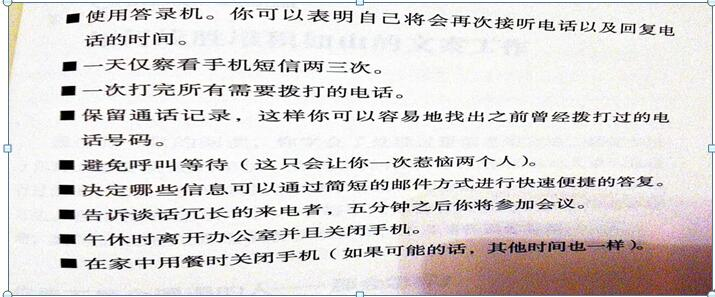 ■使用答录机。你可以表明自己将会再次接听电话以及回复电
话的时间。
■一天仅察看手机短信两三次。
■一次打完所有需要拨打的电话。
■保留通话记录，这样你可以容易地找出之前曾经拨打过的电
话号码。
■避免呼叫等待（这只会让你一次惹恼两个人）。
■决定哪些信息可以通过简短的邮件方式进行快速便捷的答复。
■告诉谈话冗长的来电者，五分钟之后你将参加会议。
■午休时离开办公室并且关闭手机。
■在家中用餐时关闭手机（如果可能的话，其他时间也一样）。